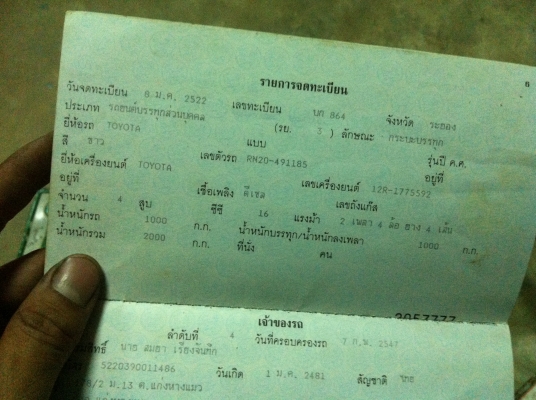 รายการจดทะเบียน
วันจดทะเบียน 8 ม.ค. 2522 เลขทะเบียน บก 864 จังหวัด ระยอง
ประเภท รถยนต์บรรทุกส่วนบุคคล (รย. 3 ) ลักษณะ กระบะบรรทุก
ยี่ห้อรถ TOYOTA แบบ รุ่นปี ค.ศ.
สี ขาว เลขตัวรถ RN20-491185 อยู่ที่
ยี่ห้อเครื่องยนต์ TOYOTA เลขเครื่องยนต์ 12R-1775592
อยู่ที่ เชื้อเพลิง ดีเซล เลขถังแก๊ส
จำนวน 4 สูบ ซีซี 16 แรงม้า 2 เพลา 4 ล้อ ยาง 4 เส้น
น้ำหนักรถ 1000 ก.ก. น้ำหนักบรรทุก/น้ำหนักลงเพลา 1000 ก.ก.
น้ำหนักรวม 2000 ก.ก. ที่นั่ง คน
เจ้าของรถ
ลำดับที่ 4 วันที่ครอบครองรถ 7 ก.พ. 2547
นาย
5220390011486 วันเกิด 1 ม.ค. 2481 สัญชาติ ไทย
178/2 ม.13 ต.แกงหางแมว